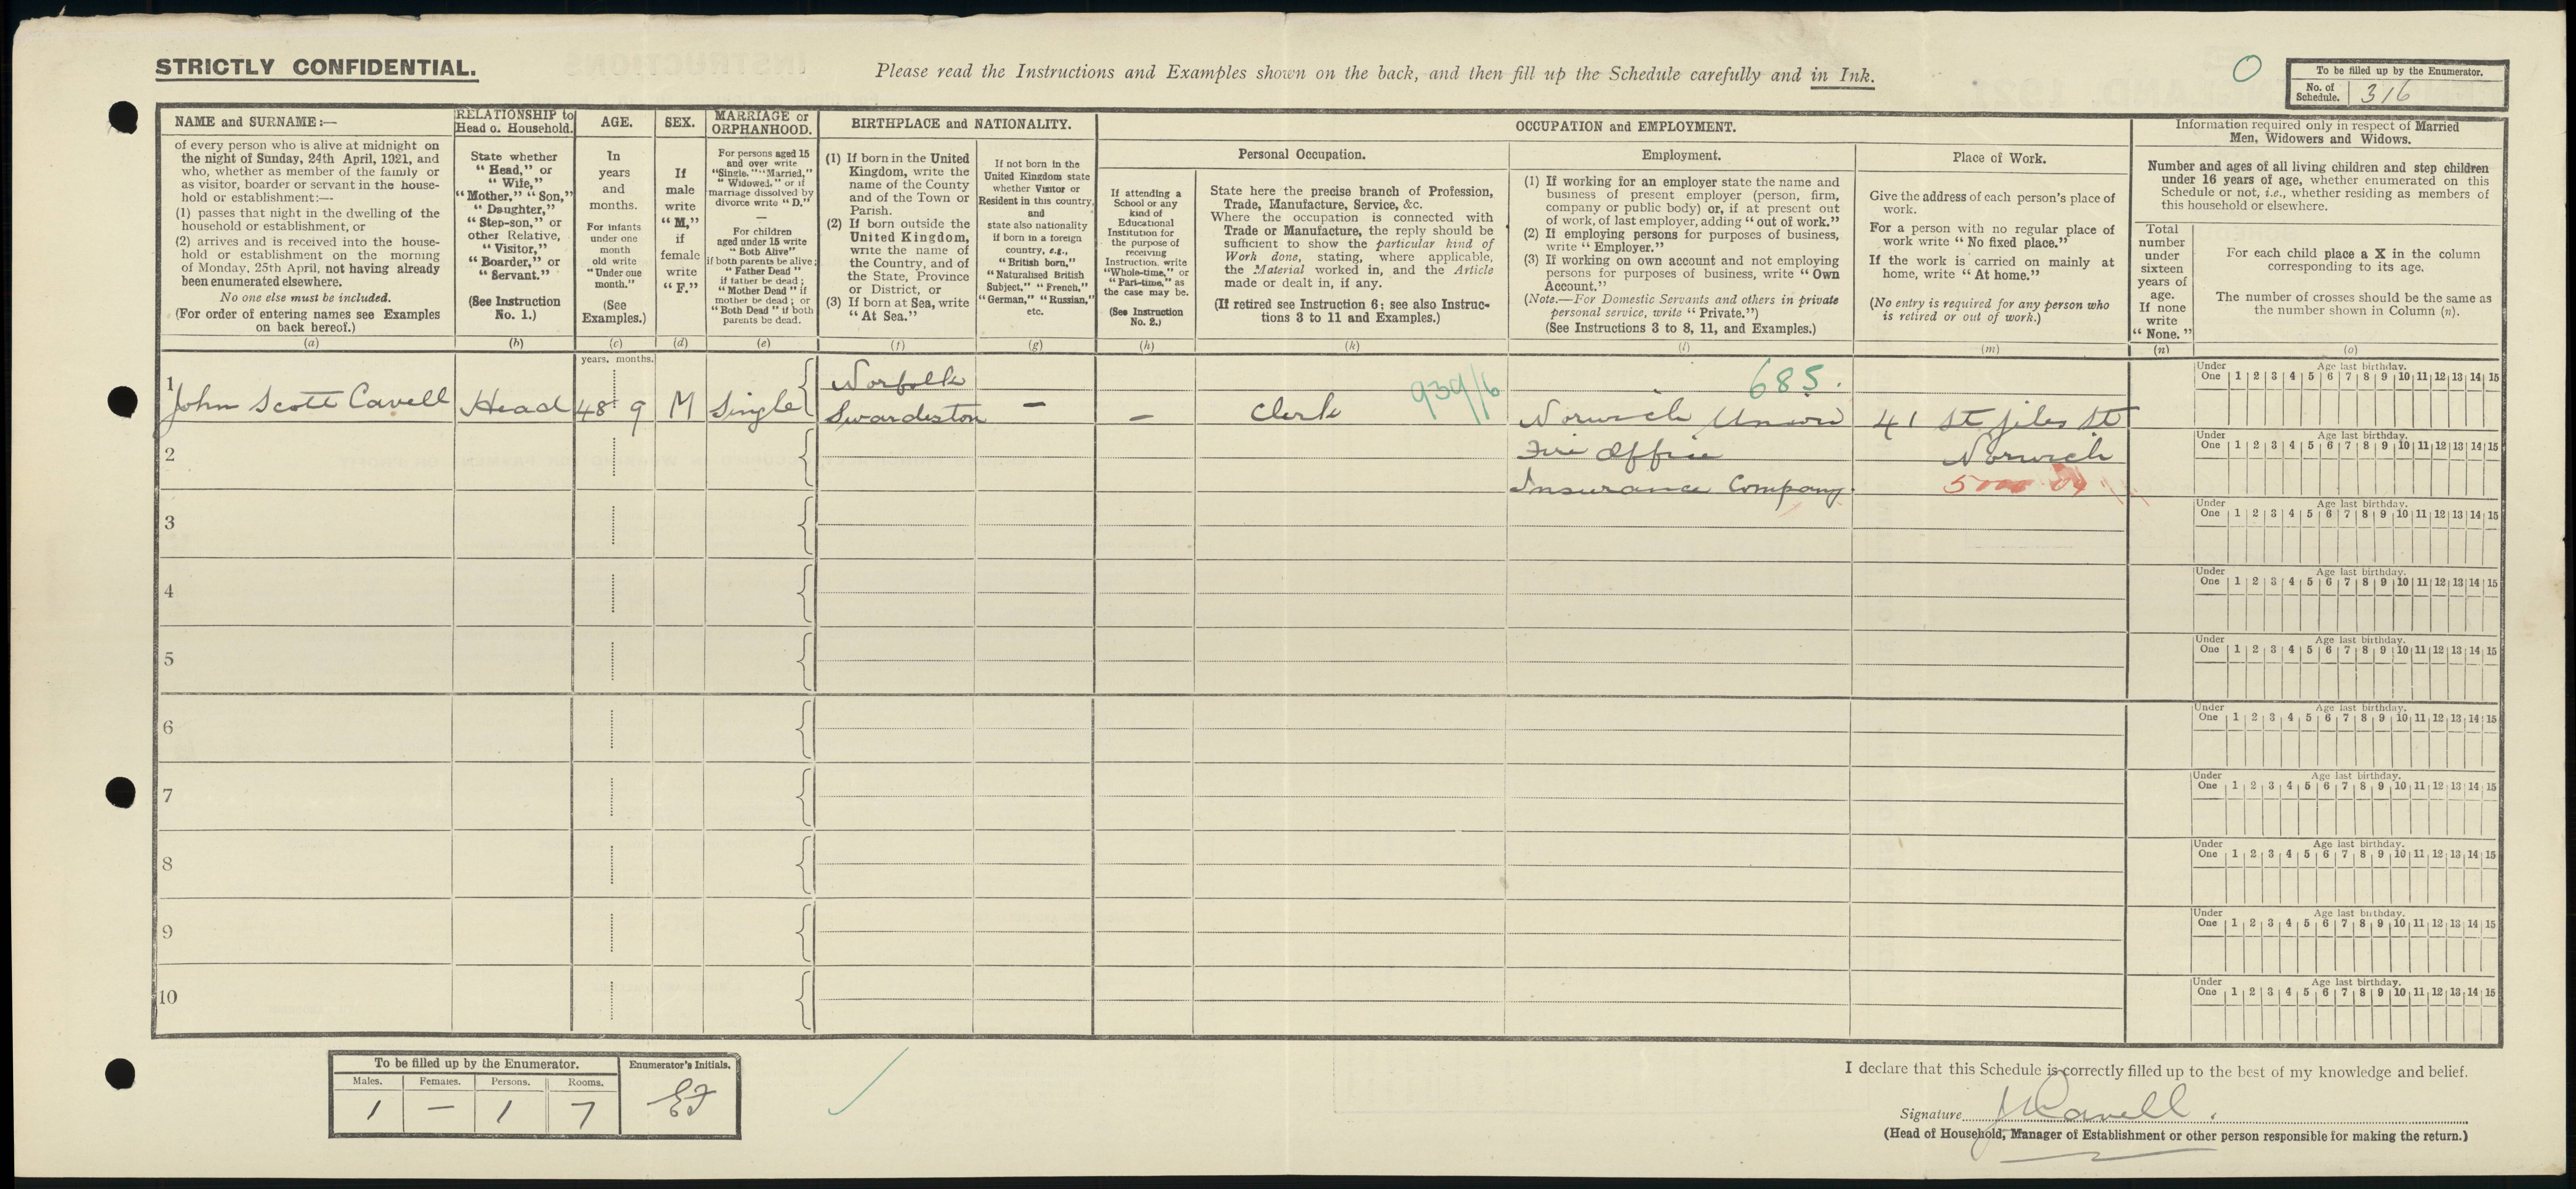 STRICTLY CONFIDENTIAL.
Please read the Instructions and Examples shown on the back, and then fill up the Schedule carefully and in Ink.
O
To be filled up by the Enumerator.
No. of Schedule. 316
NAME and SURNAME:—
of every person who is alive at midnight on
the night of Sunday, 24th April, 1921, and
who, whether as member of the family or
as visitor, boarder or servant in the house-
hold or establishment:—
(1) passes that night in the dwelling of the
household or establishment, or
(2) arrives and is received into the house-
hold or establishment on the morning
of Monday, 25th April, not having already
been enumerated elsewhere.
No one else must be included.
(For order of entering names see Examples
on back hereof.)
(a)
RELATIONSHIP to
Head o. Household.
State whether
“Head,” or
“Wife,”
“Mother,” “Son,”
“Daughter,”
“Step-son,” or
other Relative,
“Visitor,”
“Boarder,” or
“Servant.”
(See Instruction
No. 1.)
(b)
AGE.
In
years
and
months.
For infants
under one
month
old write
“Under one
month.”
(See
Examples.)
(c)
SEX.
If
male
write
“M,”
if
female
write
“F.”
(d)
MARRIAGE or
ORPHANHOOD.
For persons aged 15
and over write
“Single,” “Married,”
“Widowed,” or if
marriage dissolved by
divorce write “D.”
—
For children
aged under 15 write
“Both Alive”
if both parents be alive;
“Father Dead”
if father be dead;
“Mother Dead” if
mother be dead; or
“Both Dead” if both
parents be dead.
(e)
BIRTHPLACE and NATIONALITY.
(1) If born in the United
Kingdom, write the
name of the County
and of the Town or
Parish.
(2) If born outside the
United Kingdom,
write the name of
the Country, and of
the State, Province
or District, or
(3) If born at Sea, write
“At Sea.”
(f)
If not born in the
United Kingdom state
whether Visitor or
Resident in this country,
and
state also nationality
if born in a foreign
country, e.g.,
“British born,”
“Naturalised British
Subject,” “French,”
“German,” “Russian,”
etc.
(g)
OCCUPATION and EMPLOYMENT.
Personal Occupation.
If attending a
School or any
kind of
Educational
Institution for
the purpose of
receiving
Instruction, write
“Whole-time,” or
“Part-time,” as
the case may be.
(See Instruction
No. 2.)
(h)
State here the precise branch of Profession,
Trade, Manufacture, Service, &c.
Where the occupation is connected with
Trade or Manufacture, the reply should be
sufficient to show the particular kind of
Work done, stating, where applicable,
the Material worked in, and the Article
made or dealt in, if any.
(If retired see Instruction 6; see also Instruc-
tions 3 to 11 and Examples.)
(k)
Employment.
(1) If working for an employer state the name and
business of present employer (person, firm,
company or public body) or, if at present out
of work, of last employer, adding “out of work.”
(2) If employing persons for purposes of business,
write “Employer.”
(3) If working on own account and not employing
persons for purposes of business, write “Own
Account.”
(Note.—For Domestic Servants and others in private
personal service, write “Private.”)
(See Instructions 3 to 8, 11, and Examples.)
(l)
Place of Work.
Give the address of each person's place of
work.
For a person with no regular place of
work write “No fixed place.”
If the work is carried on mainly at
home, write “At home.”
(No entry is required for any person who
is retired or out of work.)
(m)
Information required only in respect of Married
Men, Widowers and Widows.
Number and ages of all living children and step children
under 16 years of age, whether enumerated on this
Schedule or not, i.e., whether residing as members of
this household or elsewhere.
Total
number
under
sixteen
years of
age.
If none
write
“None.”
(n)
For each child place a X in the column
corresponding to its age.
The number of crosses should be the same as
the number shown in Column (n).
(o)
years. months.
1
John Scott Cavell Head 48 9 M Single
Norfolk
Swardeston – – Clerk 939/6
685.
Norwich Union
Fire Office
Insurance Company.
41 St Giles St
Norwich
Under One 1 2 3 4 5 6 7 8 9 10 11 12 13 14 15
Age last birthday.
2
Under One 1 2 3 4 5 6 7 8 9 10 11 12 13 14 15
Age last birthday.
3
Under One 1 2 3 4 5 6 7 8 9 10 11 12 13 14 15
Age last birthday.
4
Under One 1 2 3 4 5 6 7 8 9 10 11 12 13 14 15
Age last birthday.
5
Under One 1 2 3 4 5 6 7 8 9 10 11 12 13 14 15
Age last birthday.
6
Under One 1 2 3 4 5 6 7 8 9 10 11 12 13 14 15
Age last birthday.
7
Under One 1 2 3 4 5 6 7 8 9 10 11 12 13 14 15
Age last birthday.
8
Under One 1 2 3 4 5 6 7 8 9 10 11 12 13 14 15
Age last birthday.
9
Under One 1 2 3 4 5 6 7 8 9 10 11 12 13 14 15
Age last birthday.
10
Under One 1 2 3 4 5 6 7 8 9 10 11 12 13 14 15
Age last birthday.
To be filled up by the Enumerator.
Males. Females. Persons. Rooms.
1 – 1 7
Enumerator's Initials.
EF
I declare that this Schedule is correctly filled up to the best of my knowledge and belief.
Signature JSCavell.
(Head of Household, Manager of Establishment or other person responsible for making the return.)